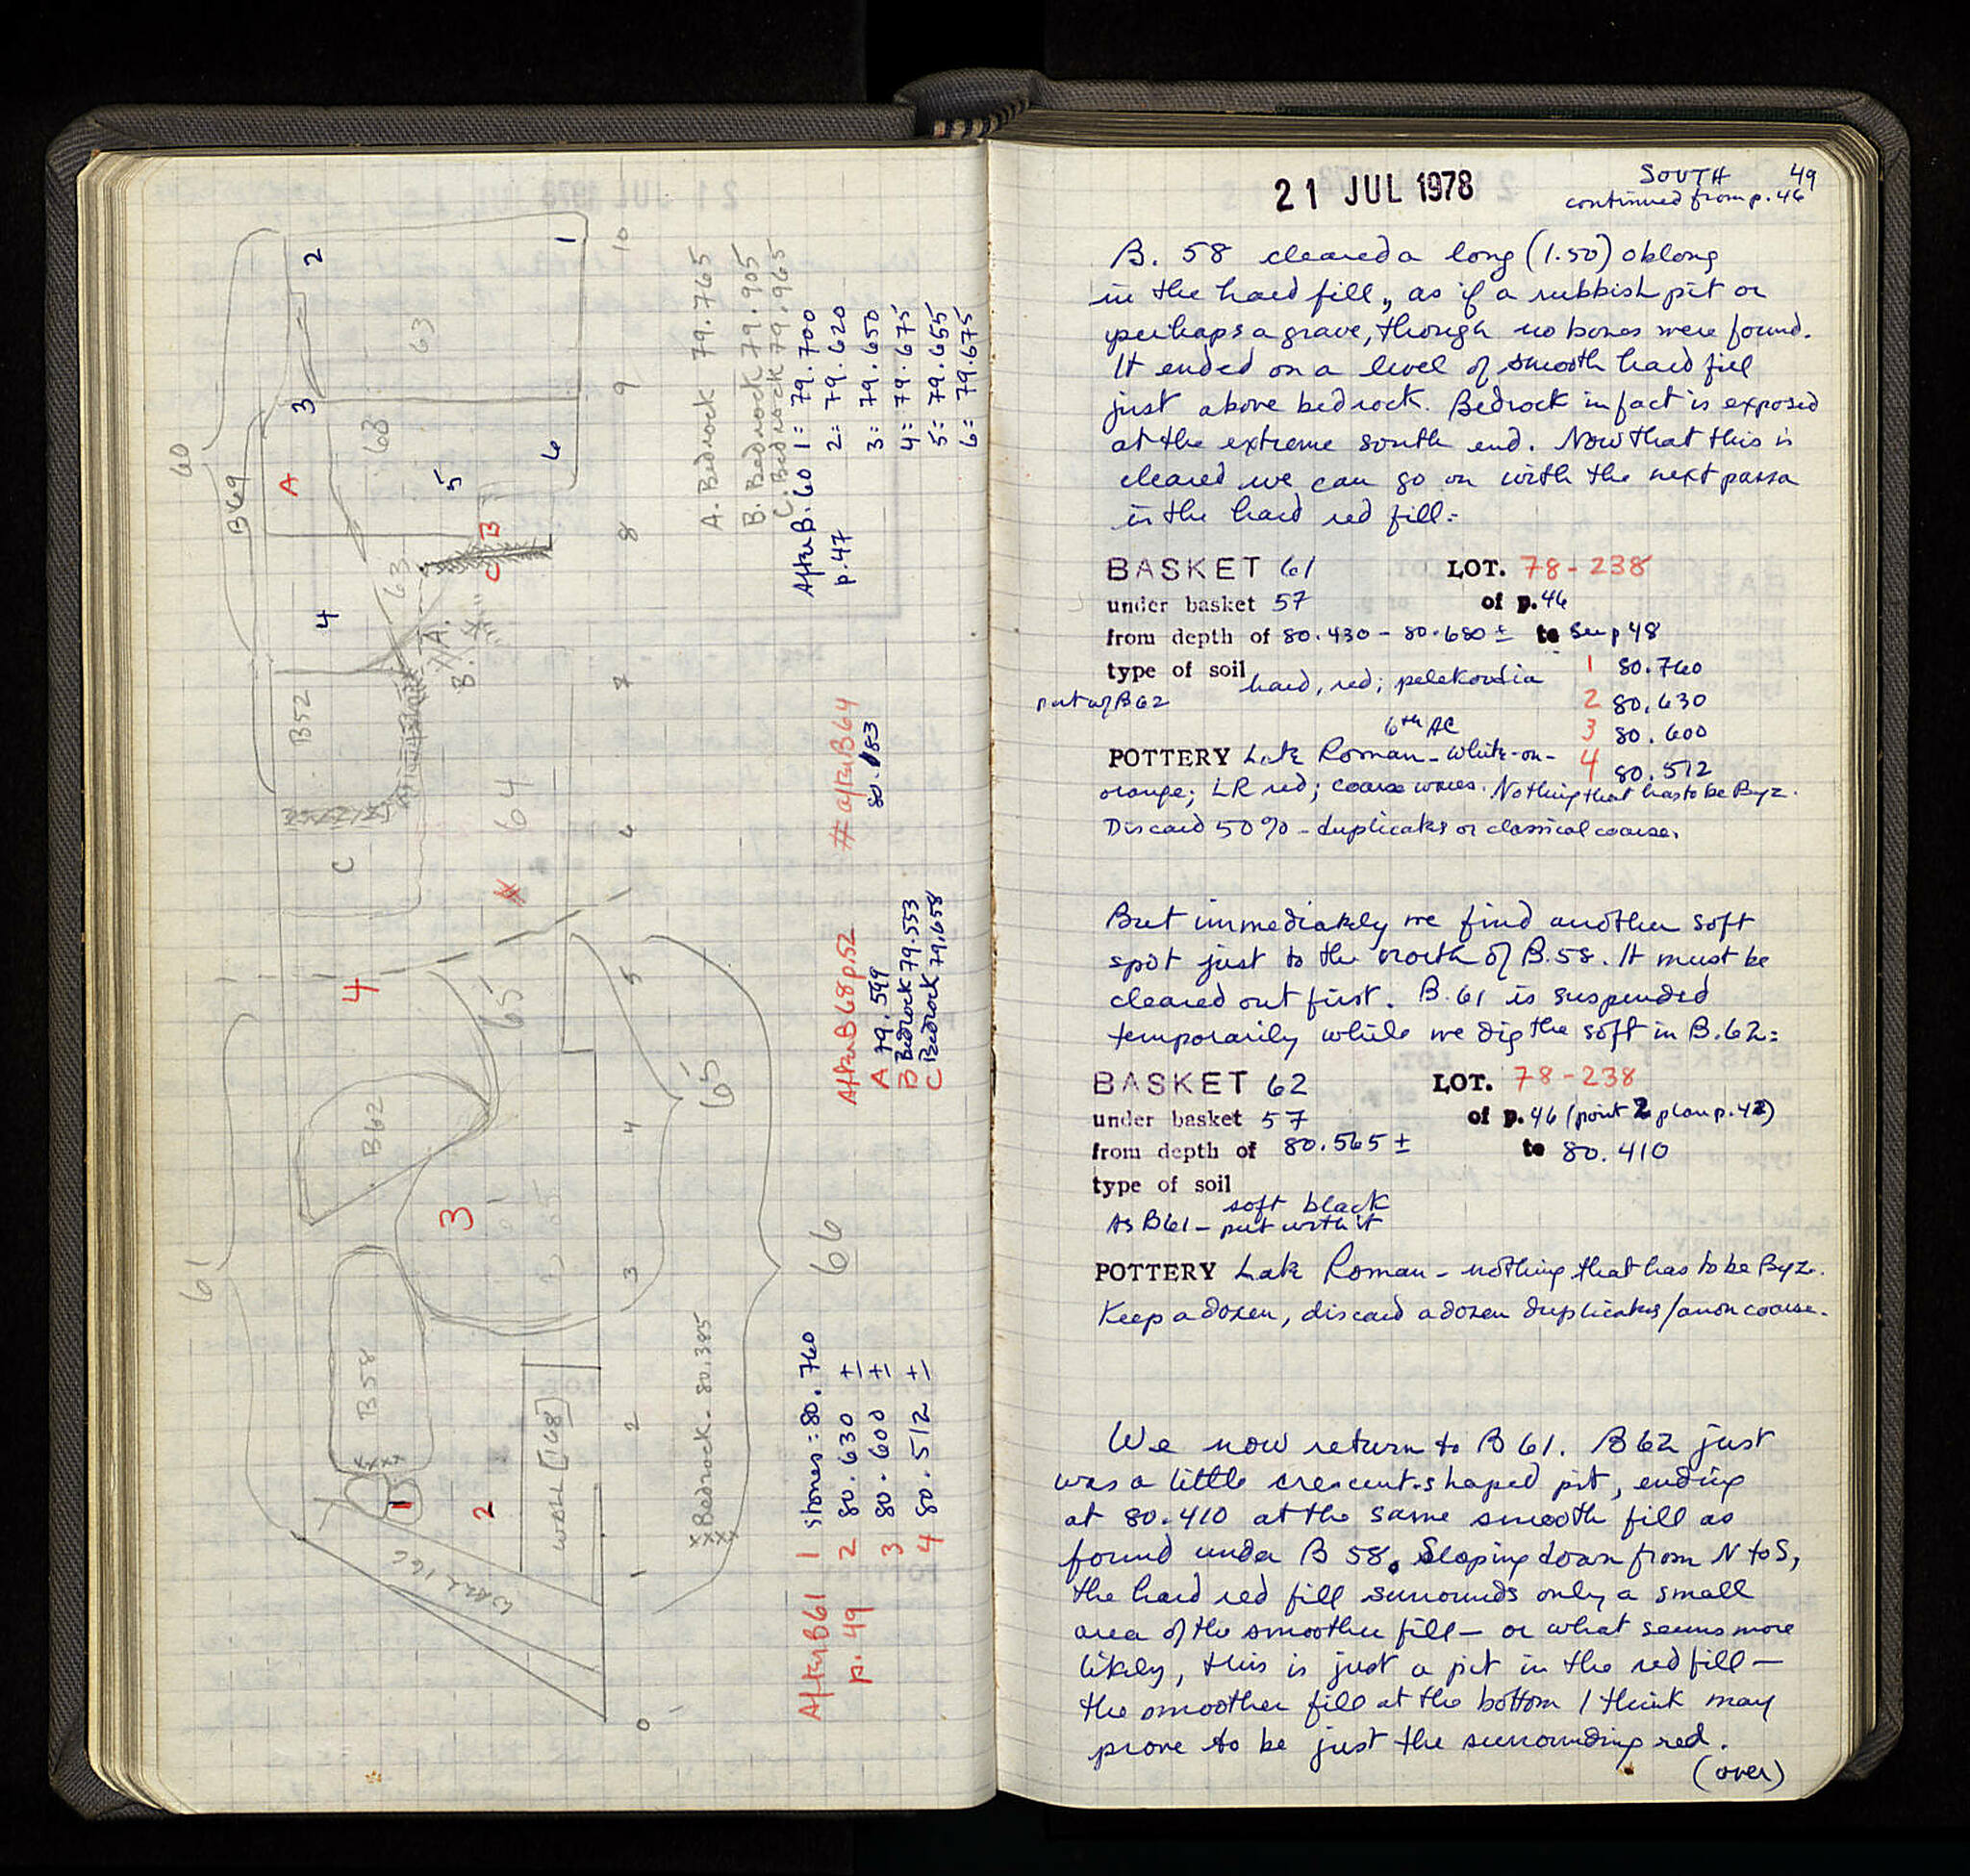 60
B69
2
1
63
3
63
A
5
6
B
C
4
63
B52
A.
B.
C
64
4
65
B62
3
61
B58
1
2
WALL [168]
WALL 166
65
66
10
9
8
7
6
5
4
3
2
1
0
A. Bedrock 79.765
B. Bedrock 79.905
C. Bedrock 79.965
After B.60 1 = 79.700
p.47 2 = 79.620
3 = 79.650
4 = 79.675
5 = 79.655
6 = 79.675
# after B64
80.183
After B68 p.52
A 79.599
B Bedrock 79.553
C Bedrock 79.658
Bedrock - 80.385
After B61 1 stones: 80.760
p. 49 2 80.630 ±
3 80.600 ±
4 80.512 ±
21 JUL 1978
SOUTH 49
continued from p. 46
B. 58 cleared a long (1.50) oblong
in the hard fill, as if a rubbish pit or
perhaps a grave, though no bones were found.
It ended on a level of smooth hard fill
just above bedrock. Bedrock in fact is exposed
at the extreme south end. Now that this is
cleared we can go on with the next passa
in the hard red fill:-
BASKET 61 LOT. 78-238
under basket 57 of p.46
from depth of 80.430 - 80.680 ± to See p 48
type of soil hard, red; pelekoudia 1 80.760
part of B62 2 80.630
6th AC 3 80.600
POTTERY Late Roman - white-on- 4 80.512
orange; LR red; coarse wares. Nothing that has to be Byz.
Discard 50% - duplicates or classical coarse.
But immediately we find another soft
spot just to the north of B.58. It must be
cleared out first. B.61 is suspended
temporarily while we dig the soft in B.62:
BASKET 62 LOT. 78-238
under basket 57 of p.46 (point 2 plan p.42)
from depth of 80.565 ± to 80.410
type of soil
soft black
As B61 - put with it
POTTERY Late Roman - nothing that has to be Byz.
Keep a dozen, discard a dozen duplicates/anon coarse.
We now return to B61. B62 just
was a little crescent-shaped pit, ending
at 80.410 at the same smooth fill as
found under B58. Sloping down from N to S,
the hard red fill surrounds only a small
area of the smoother fill - or what seems more
likely, this is just a pit in the red fill -
the smoother fill at the bottom I think may
prove to be just the surrounding red.
(over)